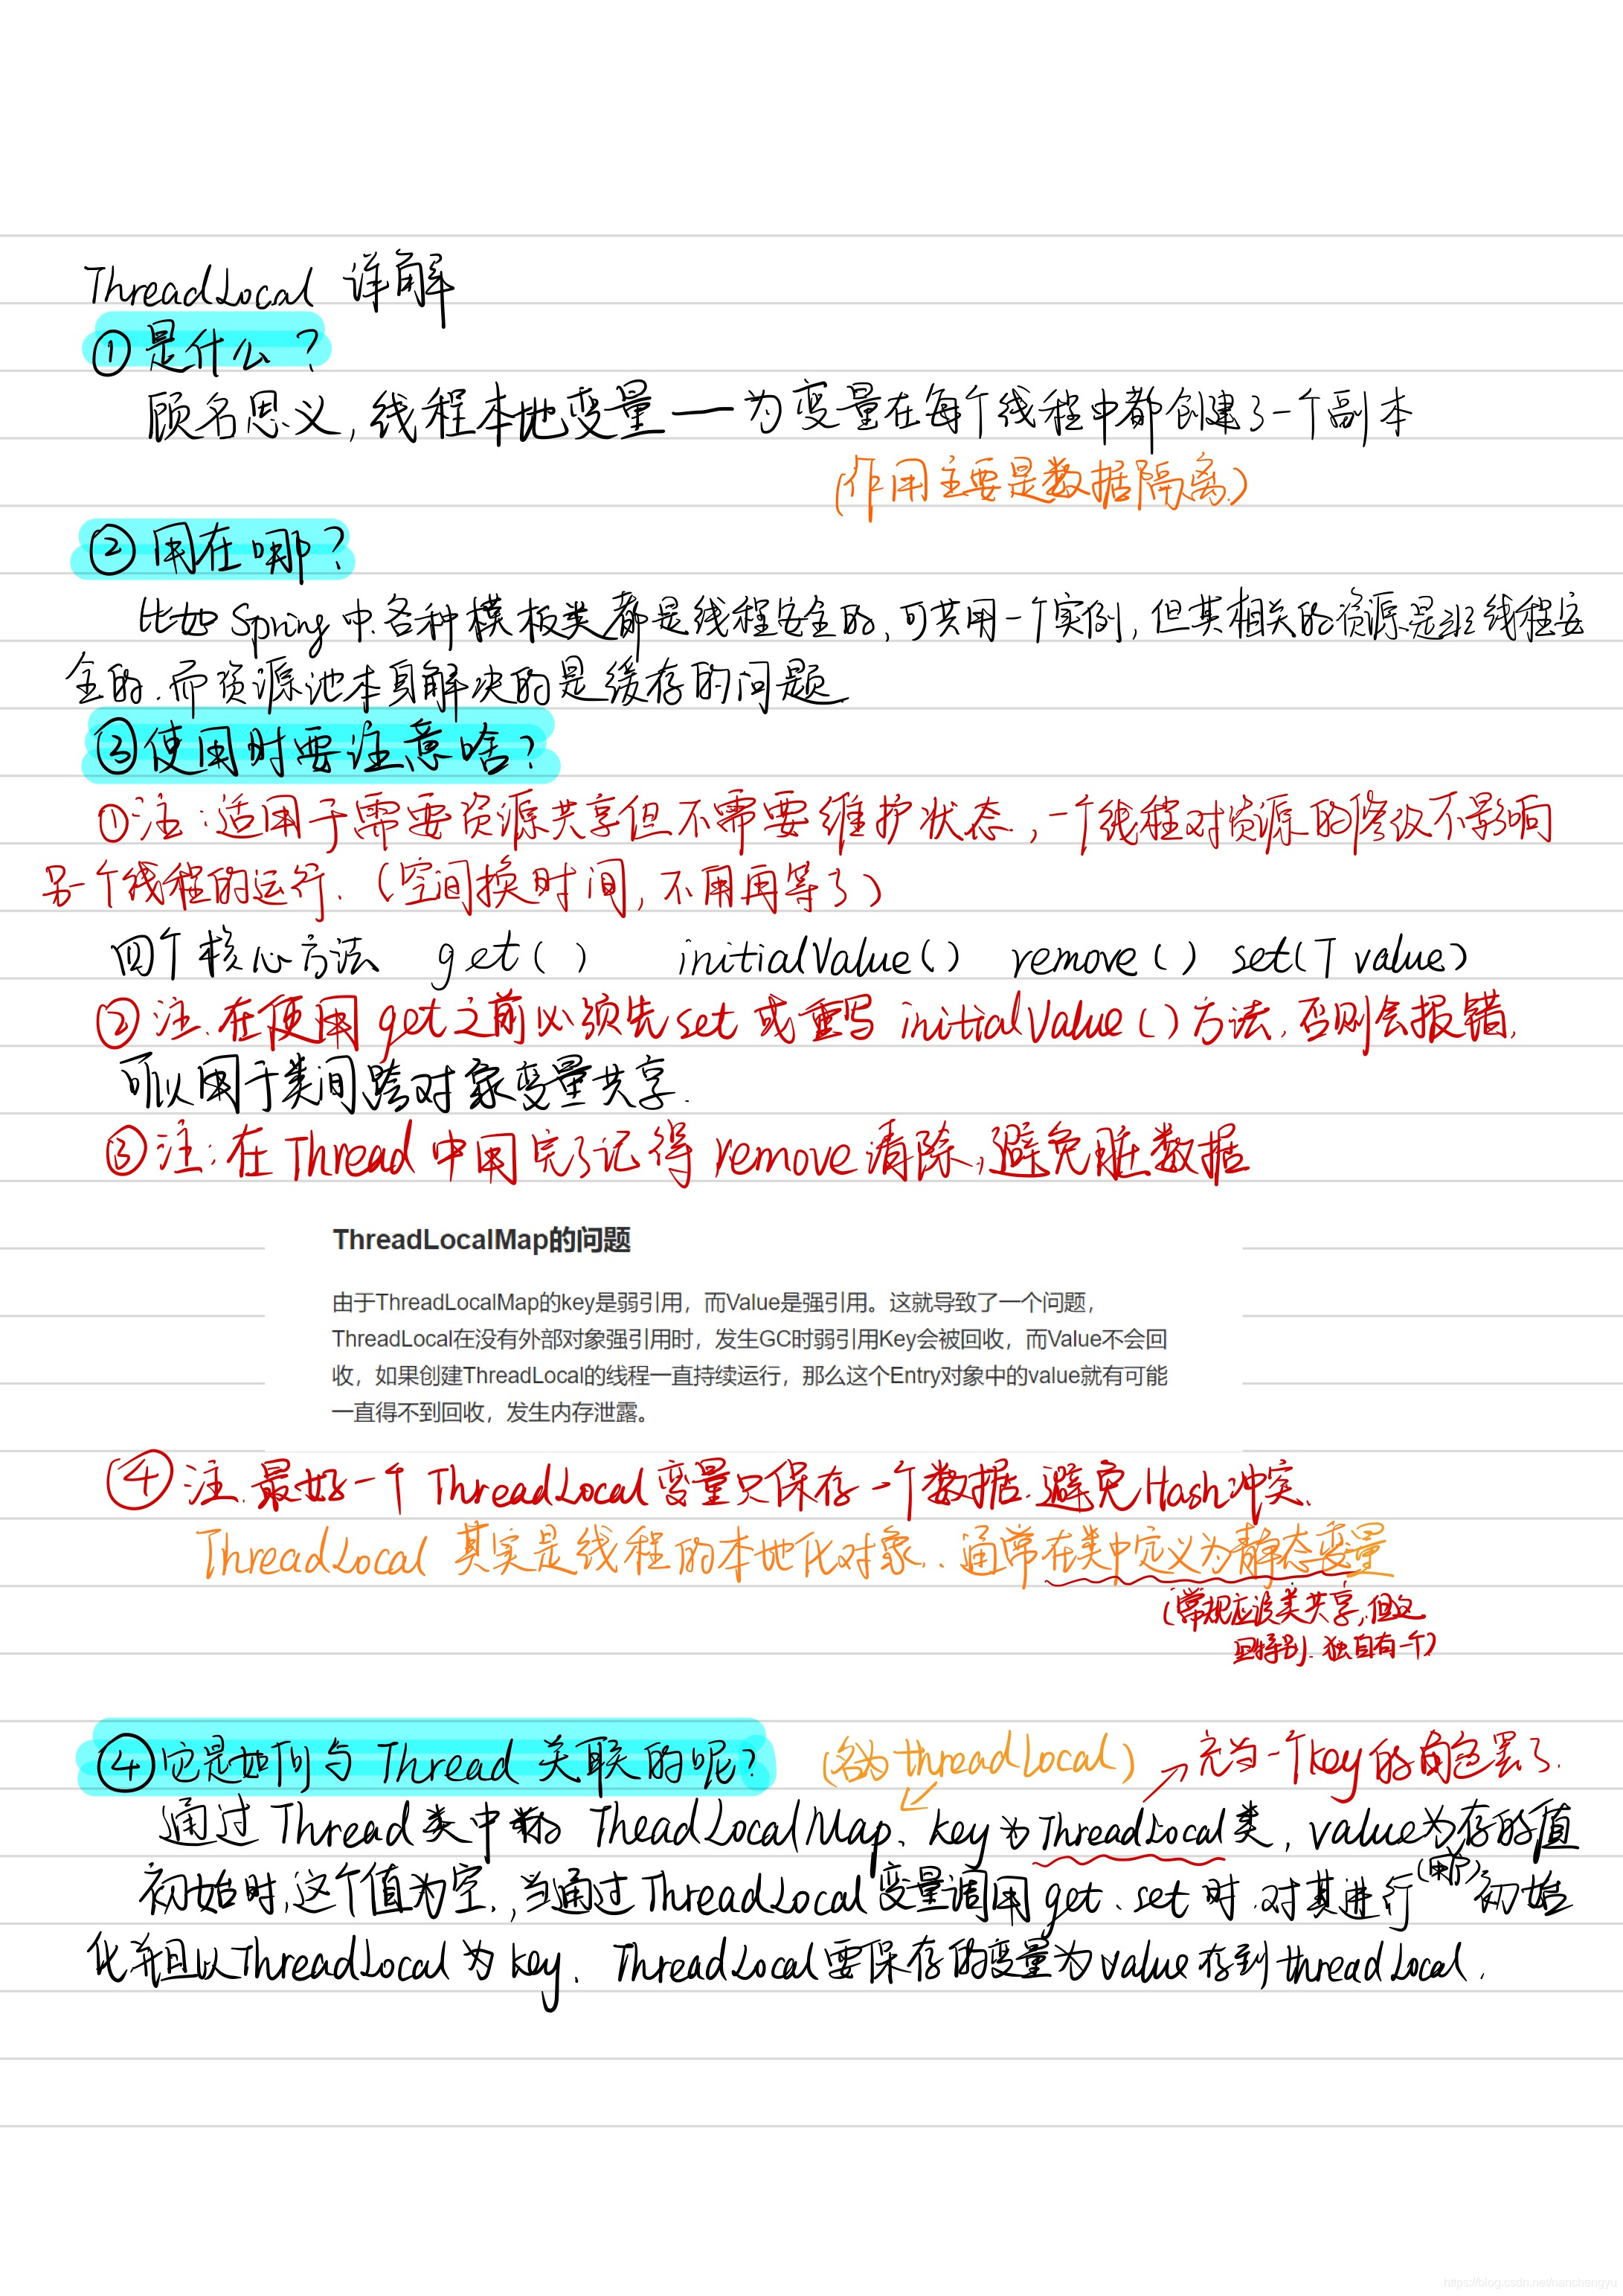 ThreadLocal 详解
①是什么？
顾名思义，线程本地变量——为变量在每个线程中都创建了一个副本
(作用主要是数据隔离)
②用在哪？
比如Spring中.各种模板类都是线程安全的,可共用一个实例,但其相关的资源是非线程安
全的.而资源池本身解决的是缓存的问题
③使用时要注意啥？
①注:适用于需要资源共享但不需要维护状态,一个线程对资源的修改不影响
另一个线程的运行.(空间换时间,不用再等了)
四个核心方法 get() initialValue() remove() set(T value)
②注.在使用get之前必须先set或重写initialValue()方法,否则会报错,
可以用于类间跨对象变量共享.
③注:在Thread中用完了记得remove清除,避免脏数据
ThreadLocalMap的问题
由于ThreadLocalMap的key是弱引用，而Value是强引用。这就导致了一个问题，
ThreadLocal在没有外部对象强引用时，发生GC时弱引用Key会被回收，而Value不会回
收，如果创建ThreadLocal的线程一直持续运行，那么这个Entry对象中的value就有可能
一直得不到回收，发生内存泄露。
④注.最好一个ThreadLocal变量只保存一个数据.避免Hash冲突.
ThreadLocal其实是线程的本地化对象..通常在类中定义为静态变量
(常规应该类共享,但这
特别.独自有一个)
④它是如何与Thread关联的呢? (名为threadLocal) →充当一个key的角色罢了.
通过Thread类中的TheadLocalMap、key为ThreadLocal类,value为存的值
初始时,这个值为空.,当通过ThreadLocal变量调用get、set时.对其进行初始
化并且以ThreadLocal为key、ThreadLocal要保存的变量为value存到threadLocal.
https://blog.csdn.net/nanchengyu